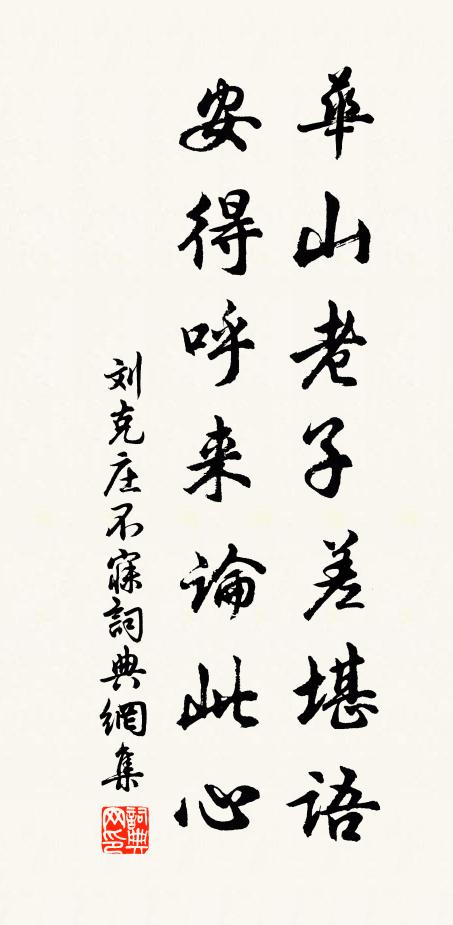 華山老子差堪語
安得呼来論此心
刘克庄不寐詞典網集
詞典
网印